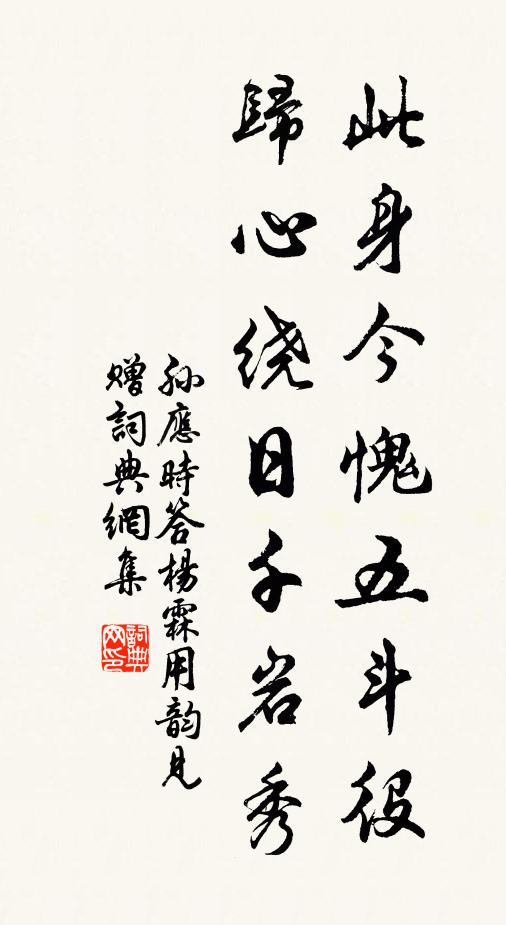 此身今愧五斗役
歸心绕日千岩秀
孫應時答楊霖用韵見
贈詞典網集
詞典网印